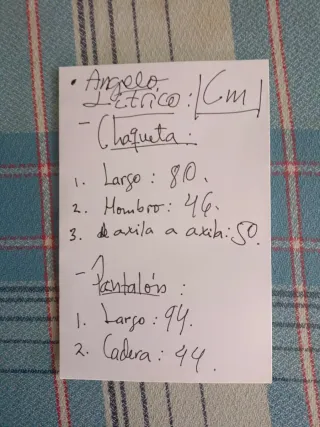 • Angelo
Létrico : Cm
- Chaqueta :
1. Largo : 80.
2. Hombro : 46.
3. de axila a axila : 50.
- Pantalón :
1. Largo : 94.
2. Cadera : 44.